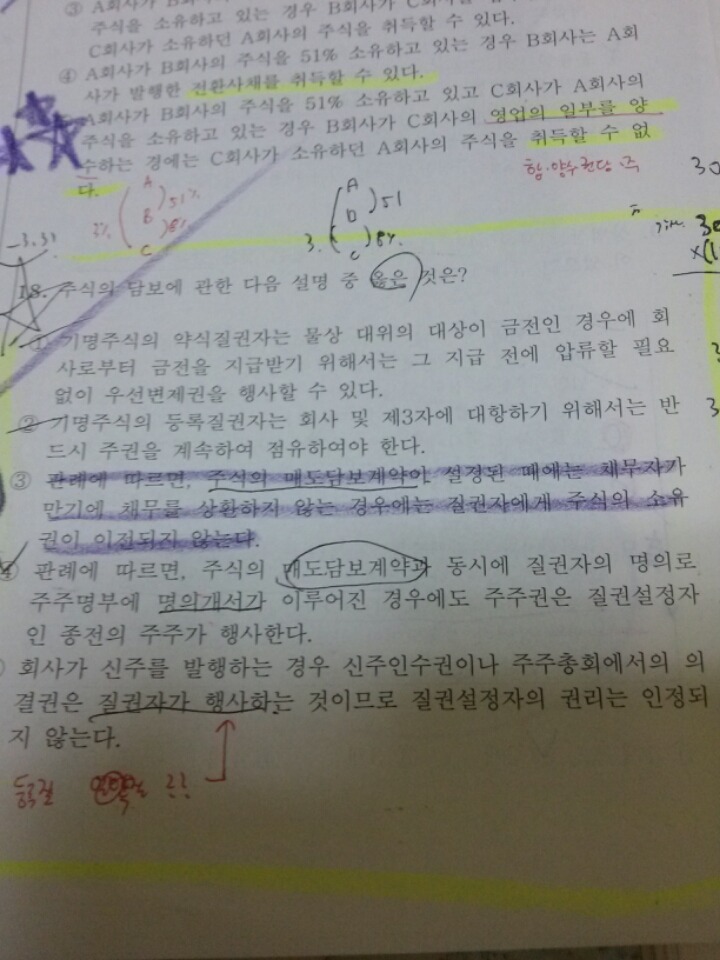 ③ A회사가 B회사
주식을 소유하고 있는 경우 B회사가 C회사의
C회사가 소유하던 A회사의 주식을 취득할 수 있다.
④ A회사가 B회사의 주식을 51% 소유하고 있는 경우 B회사는 A회
사가 발행한 전환사채를 취득할 수 있다.
A회사가 B회사의 주식을 51% 소유하고 있고 C회사가 A회사의
주식을 소유하고 있는 경우 B회사가 C회사의 영업의 일부를 양
수하는 경에는 C회사가 소유하던 A회사의 주식을 취득할 수 없
다.
A
B
C
51%
A
B
C
51
3.
30
18. 주식의 담보에 관한 다음 설명 중 옳은 것은?
① 기명주식의 약식질권자는 물상 대위의 대상이 금전인 경우에 회
사로부터 금전을 지급받기 위해서는 그 지급 전에 압류할 필요
없이 우선변제권을 행사할 수 있다.
② 기명주식의 등록질권자는 회사 및 제3자에 대항하기 위해서는 반
드시 주권을 계속하여 점유하여야 한다.
③ 판례에 따르면, 주식의 매도담보계약이 설정된 때에는 채무자가
만기에 채무를 상환하지 않는 경우에는 질권자에게 주식의 소유
권이 이전되지 않는다.
④ 판례에 따르면, 주식의 매도담보계약과 동시에 질권자의 명의로
주주명부에 명의개서가 이루어진 경우에도 주주권은 질권설정자
인 종전의 주주가 행사한다.
회사가 신주를 발행하는 경우 신주인수권이나 주주총회에서의 의
결권은 질권자가 행사하는 것이므로 질권설정자의 권리는 인정되
지 않는다.
등록질